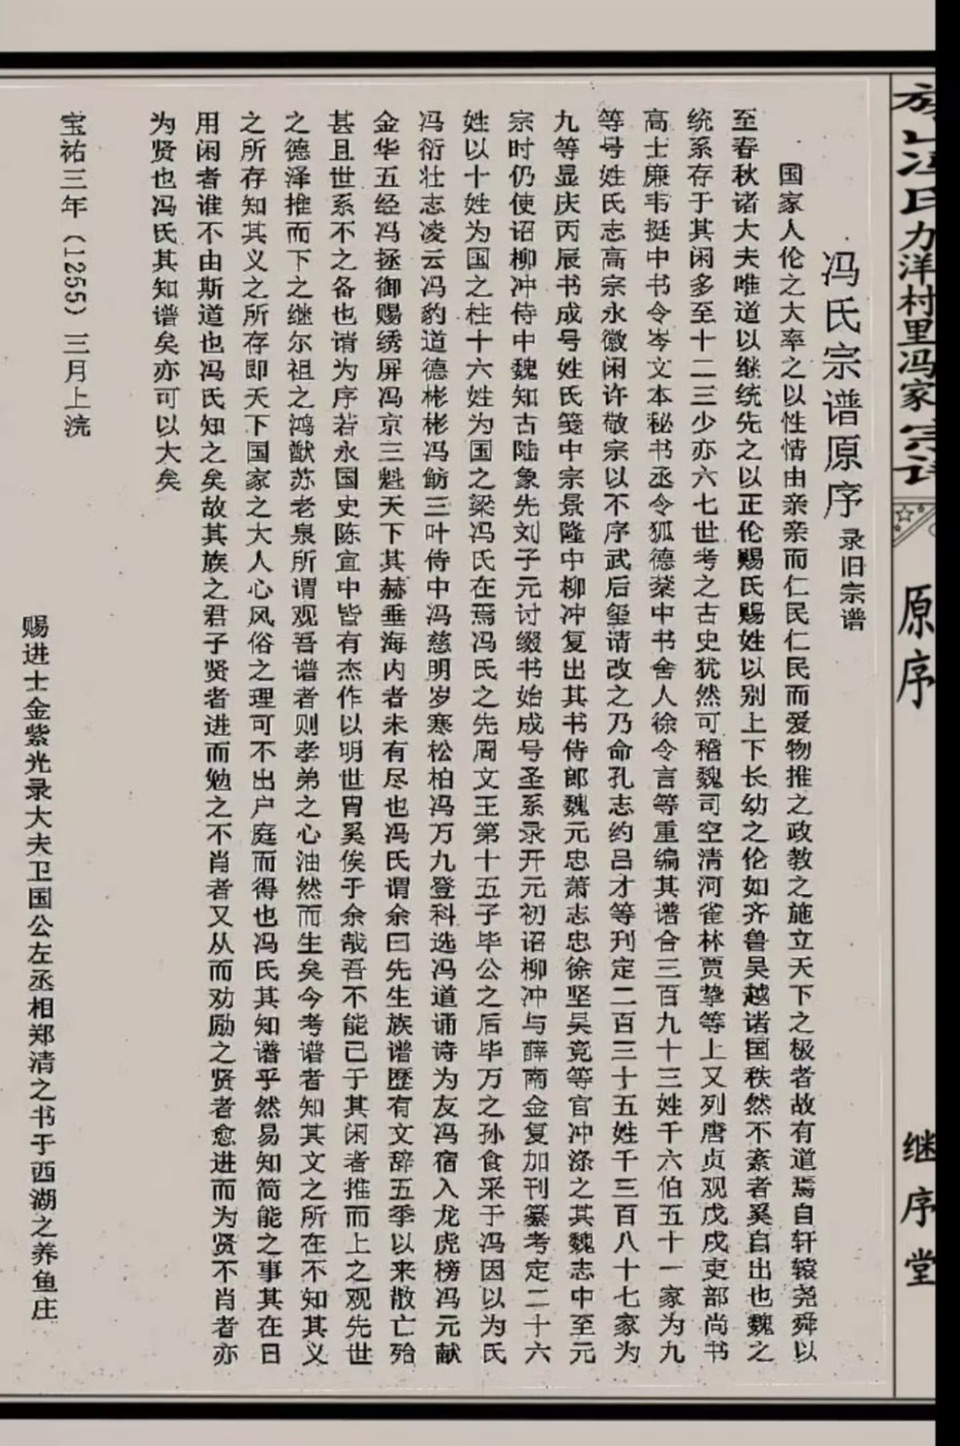 冯氏力洋村里冯家宗谱
原序
继序堂
冯氏宗谱原序 录旧宗谱
国家人伦之大率之以性情由亲亲而仁民仁民而爱物推之政教之施立天下之极者故有道焉自轩辕尧舜以
至春秋诸大夫唯道以继统先之以正伦赐氏赐姓以别上下长幼之伦如齐鲁吴越诸国秩然不紊者奚自出也魏之
统系存于其闲多至十二三少亦六七世考之古史犹然可稽魏司空清河雀林贾挚等上又列唐贞观戊戌吏部尚书
高士廉韦挺中书令岑文本秘书丞令狐德棻中书舍人徐令言等重编其谱合三百九十三姓千六伯五十一家为九
等号姓氏志高宗永徽闲许敬宗以不序武后玺请改之乃命孔志约吕才等刊定二百三十五姓千三百八十七家为
九等显庆丙辰书成号姓氏笺中宗景隆中柳冲复出其书侍郎魏元忠萧志忠徐坚吴竞等官冲涤之其魏志中至元
宗时仍使诏柳冲侍中魏知古陆象先刘子元讨缀书始成号圣系录开元初诏柳冲与薛南金复加刊纂考定二十六
姓以十姓为国之柱十六姓为国之梁冯氏在焉冯氏之先周文王第十五子毕公之后毕万之孙食采于冯因以为氏
冯衍壮志凌云冯豹道德彬彬冯鲂三叶侍中冯慈明岁寒松柏冯万九登科选冯道诵诗为友冯宿入龙虎榜冯元献
金华五经冯拯御赐绣屏冯京三魁天下其赫垂海内者未有尽也冯氏谓余曰先生族谱历有文辞五季以来散亡殆
甚且世系不之备也请为序若永国史陈宜中皆有杰作以明世胄奚俟于余哉吾不能已于其闲者推而上之观先世
之德泽推而下之继尔祖之鸿猷苏老泉所谓观吾谱者则孝弟之心油然而生矣今考谱者知其文之所在不知其义
之所存知其义之所存即天下国家之大人心风俗之理可不出户庭而得也冯氏其知谱乎然易知简能之事其在日
用闲者谁不由斯道也冯氏知之矣故其族之君子贤者进而勉之不肖者又从而劝励之贤者愈进而为贤不肖者亦
为贤也冯氏其知谱矣亦可以大矣
宝祐三年（1255）三月上浣
赐进士金紫光录大夫卫国公左丞相郑清之书于西湖之养鱼庄